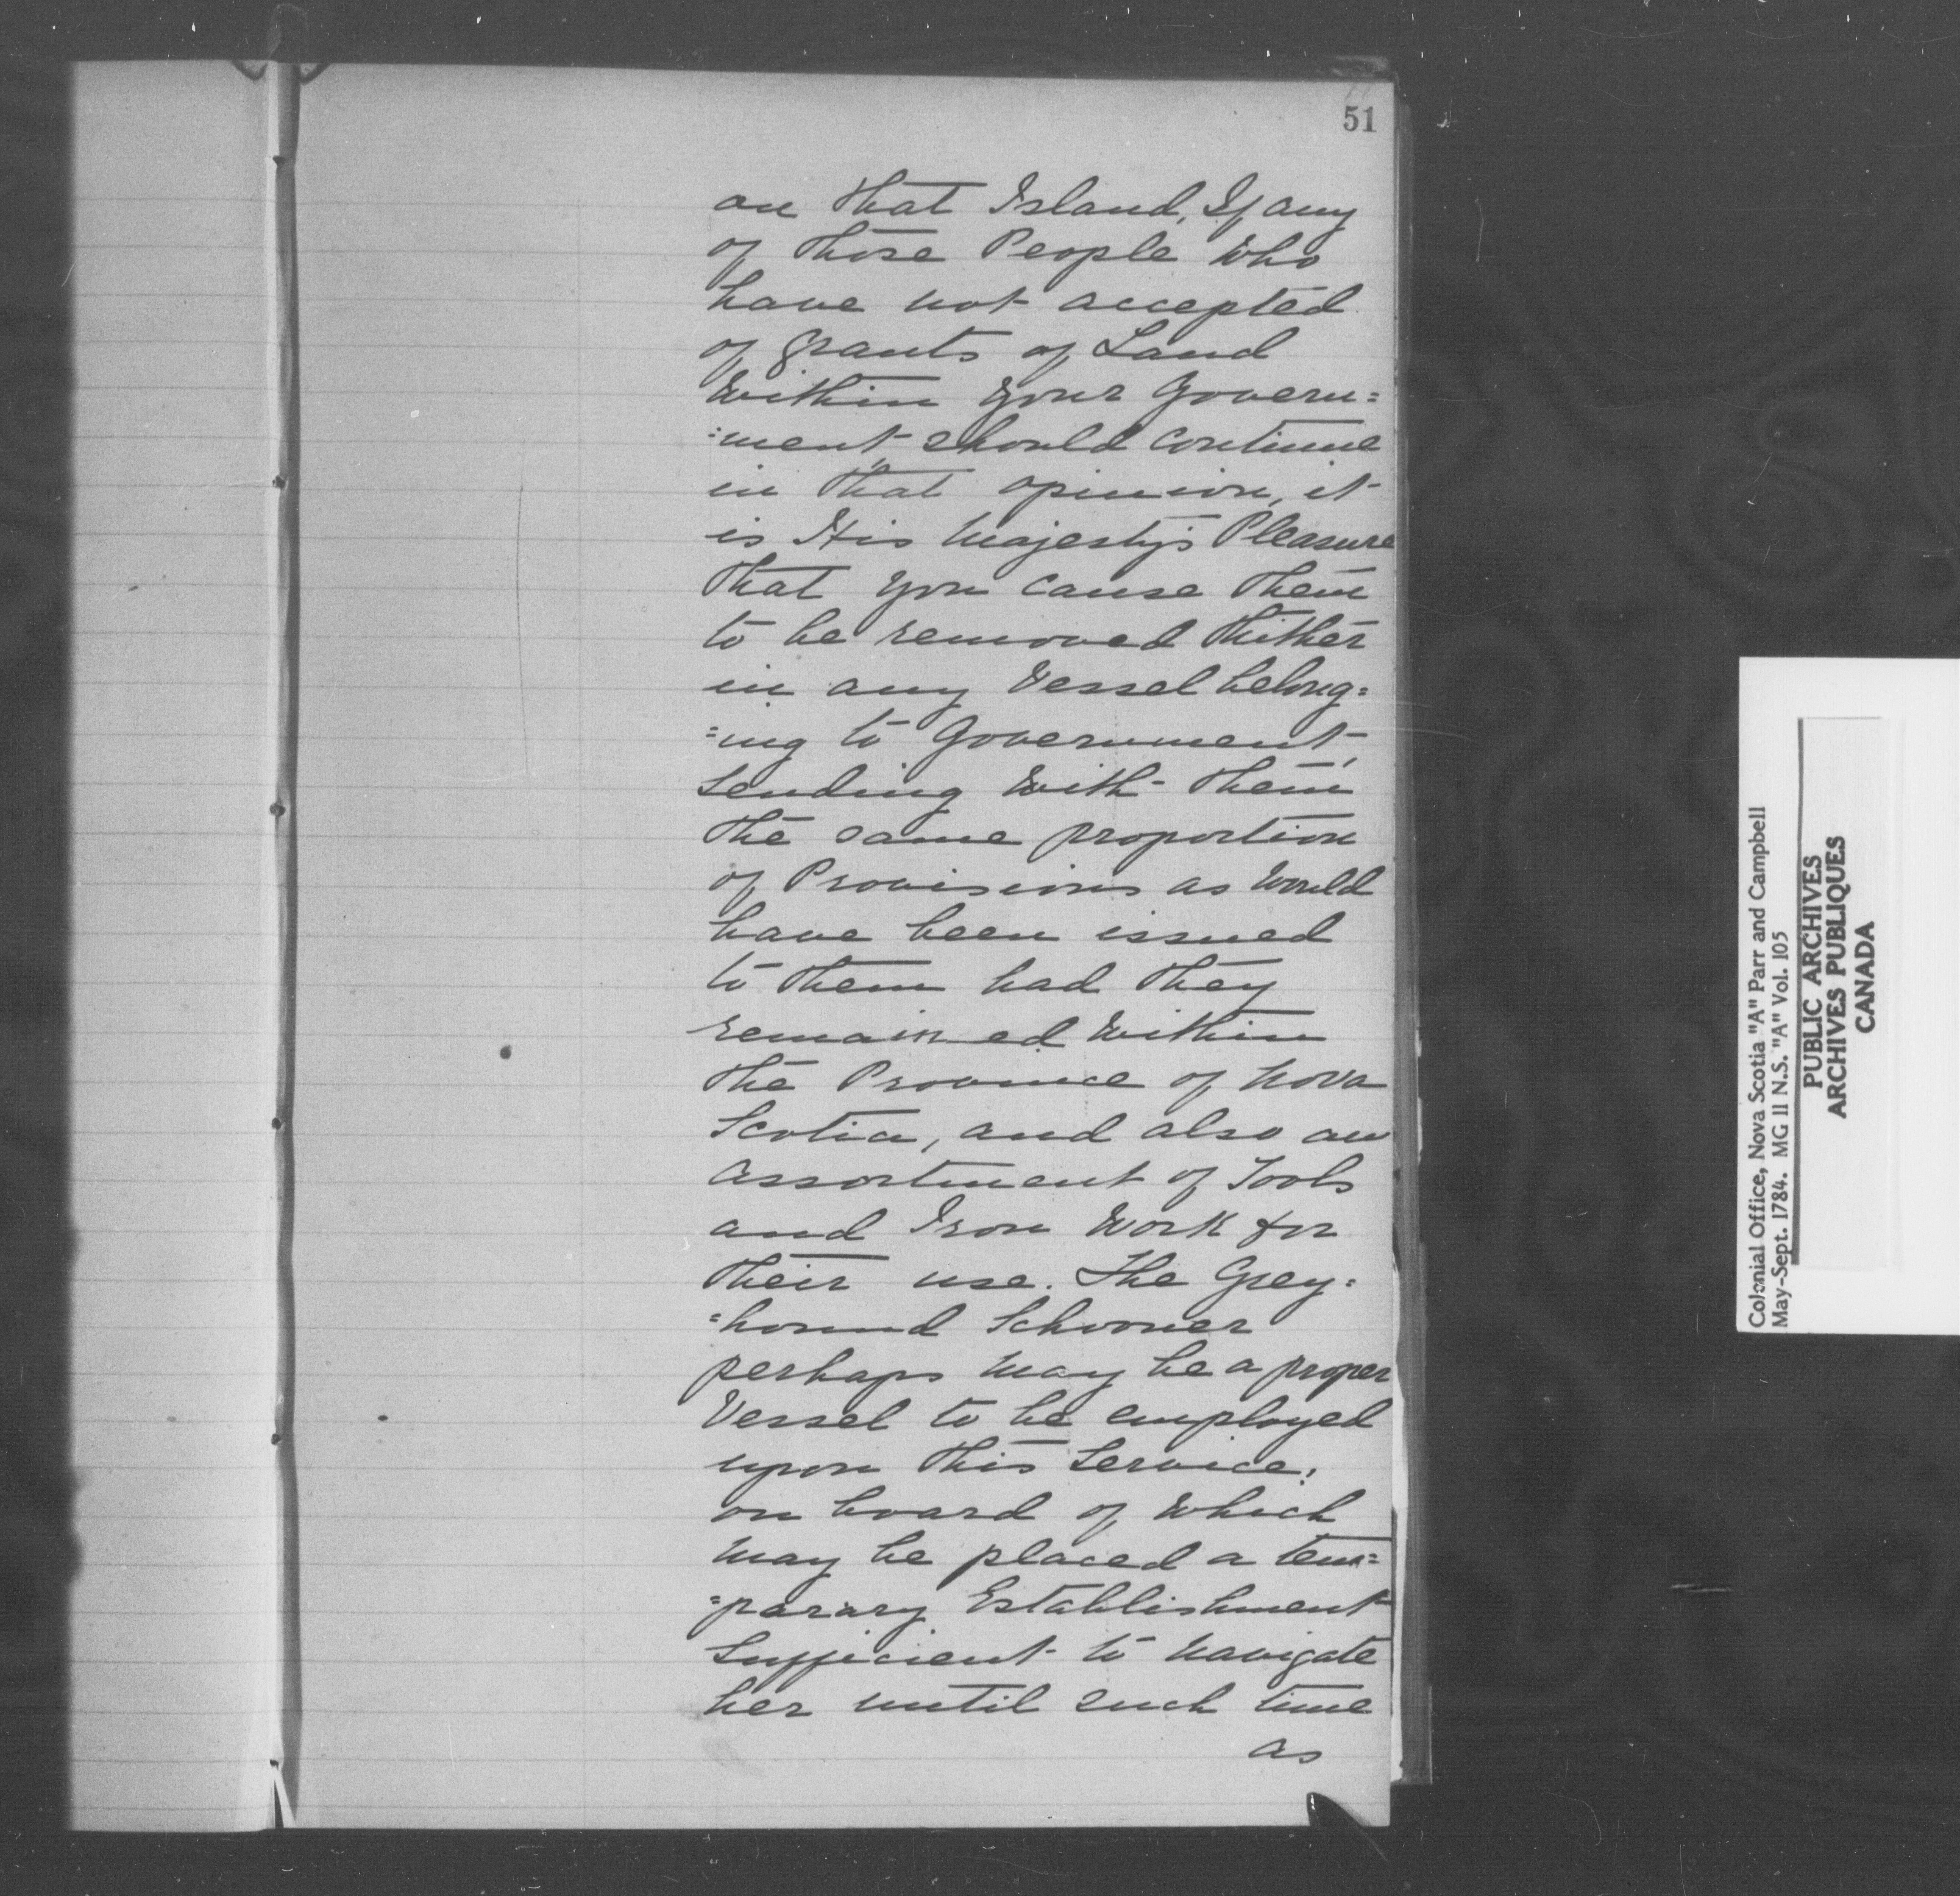 51
on that Island, If any
of those People who
have not accepted
of grants of Land
Within your Govern=
:ment should continue
in that opinion, it
is His Majesty's Pleasure
that you cause them
to be removed thither
in any Vessel belong=
=ing to Government,
sending with them
the same proportion
of Provisions as would
have been issued
to them had they
remained within
the Province of Nova
Scotia, and also an
assortment of Tools
and Iron Work for
their use. The Grey=
=hound Schooner
perhaps may be a proper
Vessel to be employed
upon this Service,
on board of which
may be placed a tem=
=parary Establishment
sufficient to navigate
her until such time
as
Colonial Office, Nova Scotia "A" Parr and Campbell
May-Sept. 1784. MG 11 N.S. "A" Vol. 105
PUBLIC ARCHIVES
ARCHIVES PUBLIQUES
CANADA